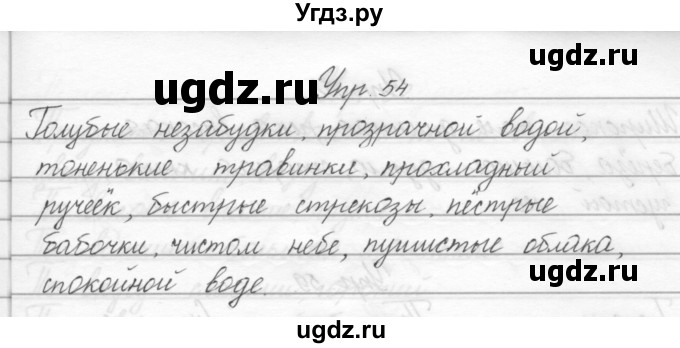 Угдз.ру
ugdz.ru
Упр. 54
ugdz.ru
Голубые незабудки, прозрачной водой,
тоненькие травинки, прохладный
ручеёк, быстрые стрекозы, пёстрые
ugdz.ru
бабочки, чистом небе, пушистые облака,
спокойной воде.
ugdz.ru
ugdz.ru